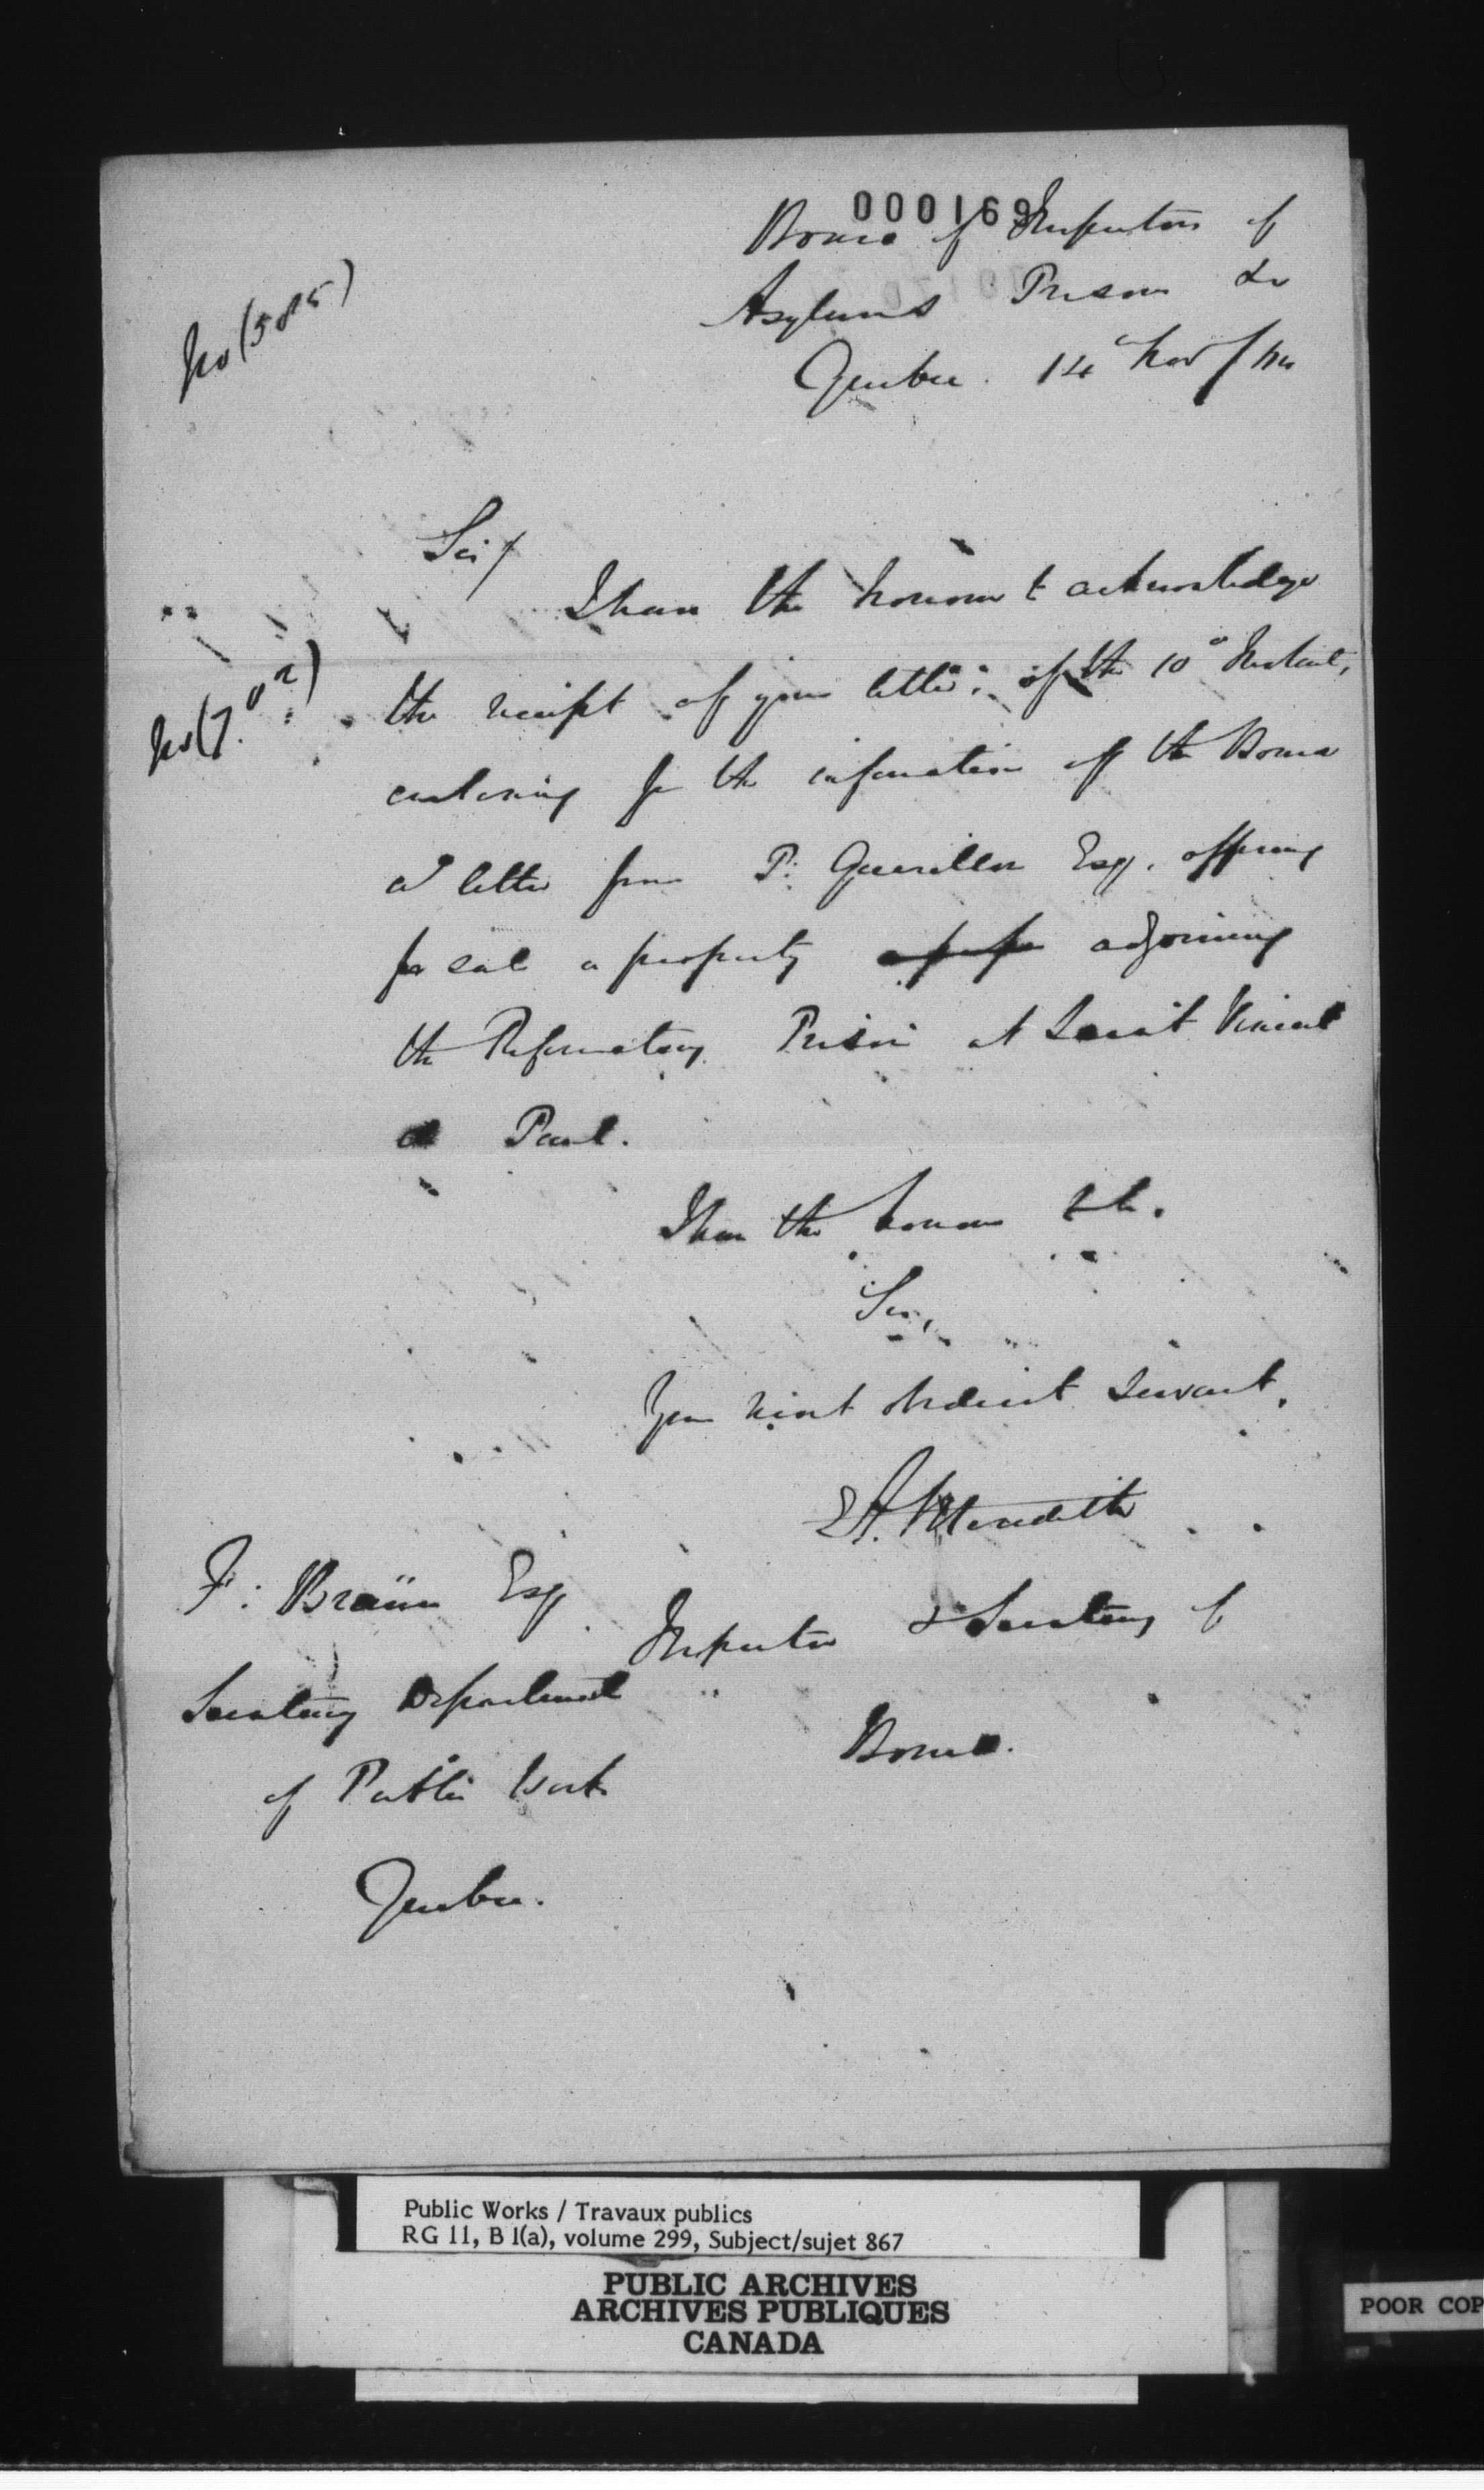 000169
Board of Inspectors of
Asylums Prisons &c
Quebec. 14 Nov/
No (5015)
Sir/
I have the honour to acknowledge
the receipt of your letter of the 10° Instant,
No (7
enclosing for the information of the Board
a letter from P: Esq. offering
for sale a property adjoining
the Reformatory Prison at Saint Vincent
de Paul.
I have the honour to be.
Sir,
Your most obedient servant.
EA. Meredith
F: Braün Esq
Inspector & Secretary of
Secretary Department
Board.
of Public Works
Quebec.
Public Works / Travaux publics
RG 11, B 1(a), volume 299, Subject/sujet 867
PUBLIC ARCHIVES
ARCHIVES PUBLIQUES
CANADA
POOR COP